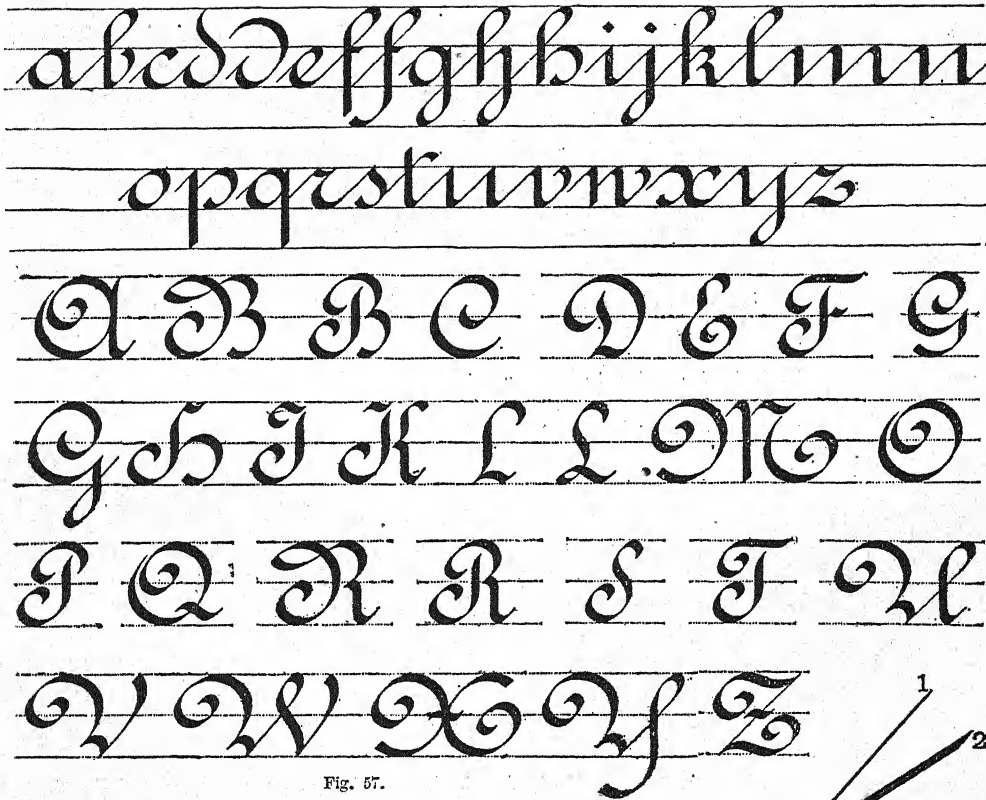 abcddeffghhijklmn
opqrstuvwxyz
A B B C D E F G
G H I K L L M O
P Q R R S T U
V W X Y Z
1
2
Fig. 57.